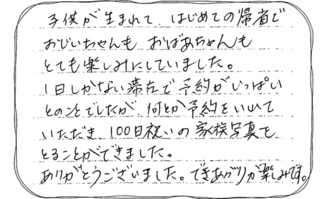 子供が生まれて はじめての帰省で
おじいちゃんも おばあちゃんも
とても楽しみにしていました。
1日しかない滞在で予約がいっぱい
とのことでしたが 何とか予約をいれて
いただき、100日祝いの家族写真も
とることができました。
ありがとうございました。できあがりが楽しみです。